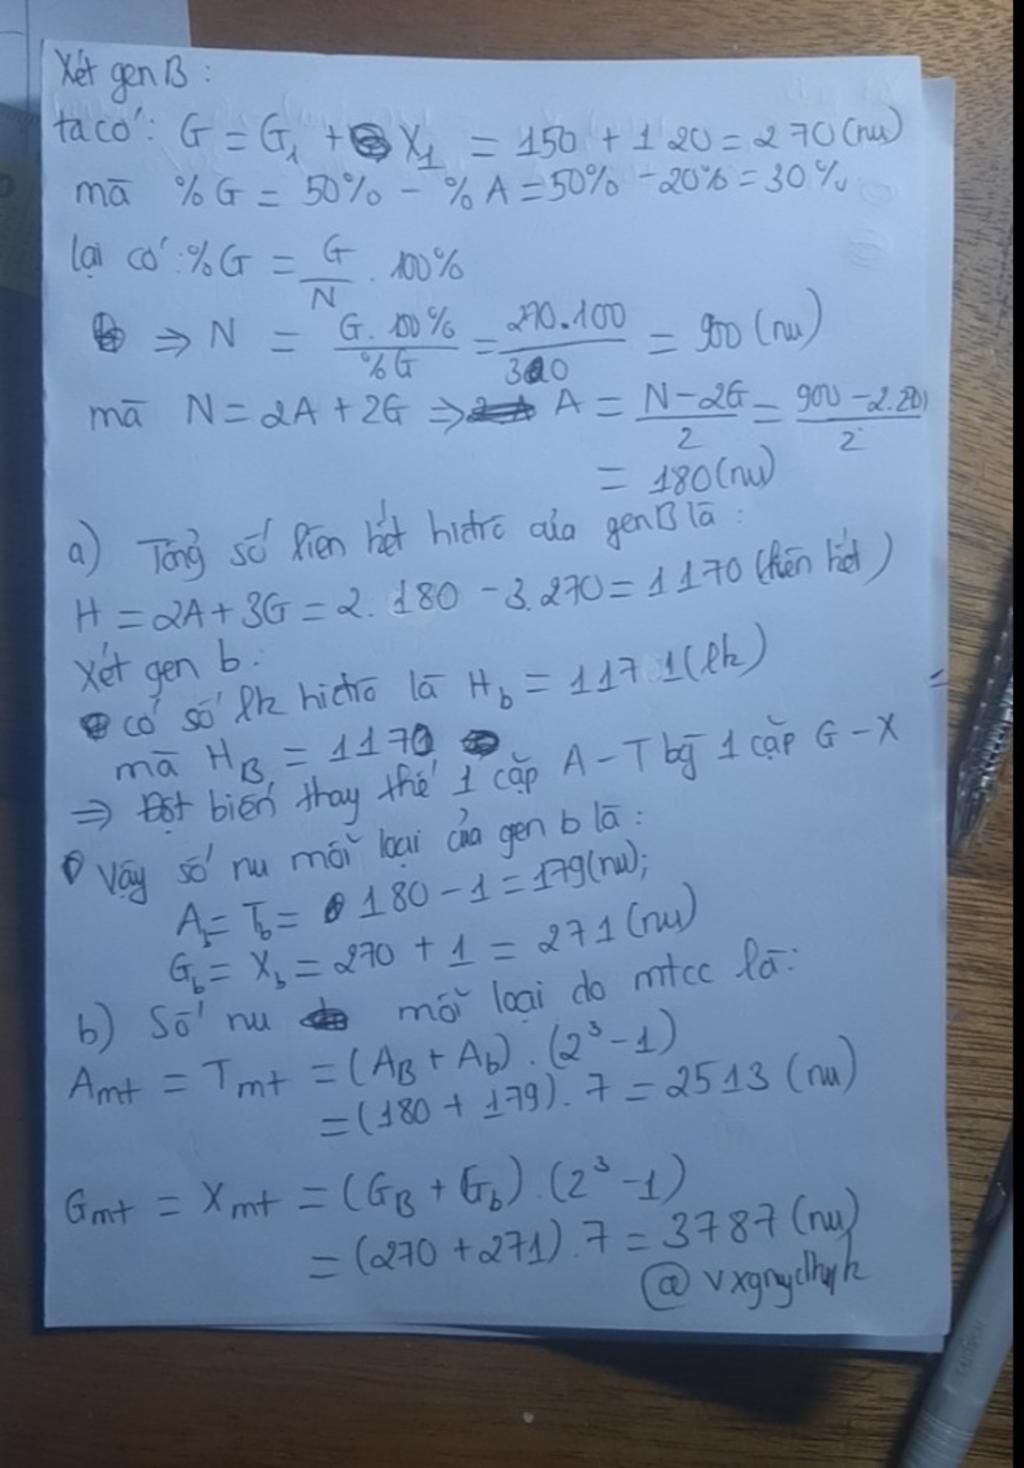 Xét gen B:
ta có: G = G₁ + X₁ = 150 + 120 = 270 (nu)
mà %G = 50% - %A = 50% - 20% = 30%
lại có: %G = G/N . 100%
⇒ N = G.100%/%G = 270.100/30 = 900 (nu)
mà N = 2A + 2G ⇒ A = N-2G/2 = 900-2.270/2
= 180 (nu)
a) Tổng số liên kết hiđrô của gen B là:
H = 2A + 3G = 2.180 - 3.270 = 1170 (liên kết)
Xét gen b:
có số lk hiđrô là H_b = 1171 (lk)
mà H_B = 1170
⇒ Đột biến thay thế 1 cặp A-T bg 1 cặp G-X
Vậy số nu mỗi loại của gen b là:
A_b = T_b = 180 - 1 = 179 (nu);
G_b = X_b = 270 + 1 = 271 (nu)
b) Số nu mỗi loại do mtcc là:
Amt = Tmt = (A_B + A_b) . (2³ - 1)
= (180 + 179) . 7 = 2513 (nu)
Gmt = Xmt = (G_B + G_b) . (2³ - 1)
= (270 + 271) . 7 = 3787 (nu)